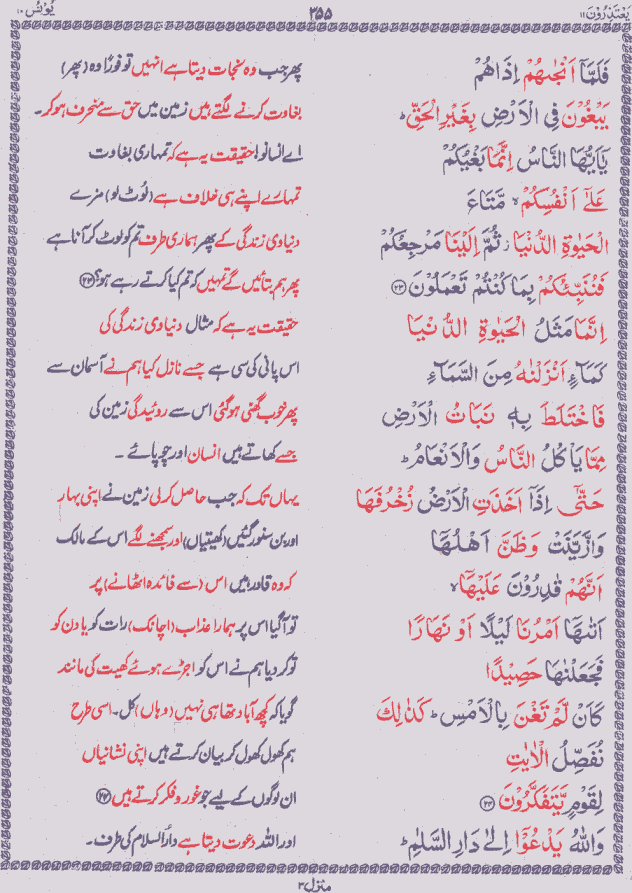 یَعْتَذِرُوْنَ ۱۱ ۳۵۵ یُوْنُس ۱۰
فَلَمَّاۤ اَنْجٰىهُمْ اِذَا هُمْ پھر جب وہ نجات دیتا ہے انہیں تو فورًا وہ (پھر)
یَبْغُوْنَ فِی الْاَرْضِ بِغَیْرِ الْحَقِّ ؕ بغاوت کرنے لگتے ہیں زمین میں حق سے منحرف ہو کر۔
یٰۤاَیُّهَا النَّاسُ اِنَّمَا بَغْیُكُمْ اے انسانو! حقیقت یہ ہے کہ تمہاری بغاوت
عَلٰۤی اَنْفُسِكُمْ ۙ مَّتَاعَ تمہارے اپنے ہی خلاف ہے (لُوٹ لو) مزے
الْحَیٰوةِ الدُّنْیَا ؗ ثُمَّ اِلَیْنَا مَرْجِعُكُمْ دنیاوی زندگی کے پھر ہماری طرف تم کو لوٹ کر آنا ہے
فَنُنَبِّئُكُمْ بِمَا كُنْتُمْ تَعْمَلُوْنَ ﴿۲۳﴾ پھر ہم بتائیں گے تمہیں کہ تم کیا کرتے رہے ہو؟ ﴿۲۳﴾
اِنَّمَا مَثَلُ الْحَیٰوةِ الدُّنْیَا حقیقت یہ ہے کہ مثال دنیاوی زندگی کی
كَمَآءٍ اَنْزَلْنٰهُ مِنَ السَّمَآءِ اس پانی کی سی ہے جسے نازل کیا ہم نے آسمان سے
فَاخْتَلَطَ بِهٖ نَبَاتُ الْاَرْضِ پھر خوب گھنی ہو گئی اس سے روئیدگی زمین کی
مِمَّا یَاْكُلُ النَّاسُ وَالْاَنْعَامُ ؕ جسے کھاتے ہیں انسان اور چوپائے ۔
حَتّٰۤی اِذَاۤ اَخَذَتِ الْاَرْضُ زُخْرُفَهَا یہاں تک کہ جب حاصل کر لی زمین نے اپنی بہار
وَازَّیَّنَتْ وَظَنَّ اَهْلُهَاۤ اور بن سنور گئیں (کھیتیاں) اور سمجھنے لگے اس کے مالک
اَنَّهُمْ قٰدِرُوْنَ عَلَیْهَاۤ ۙ کہ وہ قادر ہیں اس (سے فائدہ اٹھانے) پر
اَتٰىهَاۤ اَمْرُنَا لَیْلًا اَوْ نَهَارًا تو آ گیا اس پر ہمارا عذاب (اچانک) رات کو یا دن کو
فَجَعَلْنٰهَا حَصِیْدًا تو کر دیا ہم نے اس کو اجڑے ہوئے کھیت کی مانند
كَاَنْ لَّمْ تَغْنَ بِالْاَمْسِ ؕ كَذٰلِكَ گویا کہ کچھ آباد تھا ہی نہیں (وہاں) کل۔ اسی طرح
نُفَصِّلُ الْاٰیٰتِ ہم کھول کھول کر بیان کرتے ہیں اپنی نشانیاں
لِقَوْمٍ یَّتَفَكَّرُوْنَ ﴿۲۴﴾ ان لوگوں کے لیے جو غور و فکر کرتے ہیں ﴿۲۴﴾
وَاللّٰهُ یَدْعُوْۤا اِلٰی دَارِ السَّلٰمِ ؕ اور اللہ دعوت دیتا ہے دارُالسلام کی طرف۔
منزل ۳